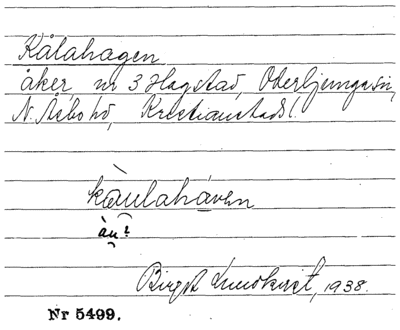 Kålahagen
åker, nr 3 Hagstad, Oderljunga sn,
N. Åsbo hd, Kristianstads l.
kau̯lahāven
àu̯?
Birgit Lundkvist, 1938.
Nr 5499.